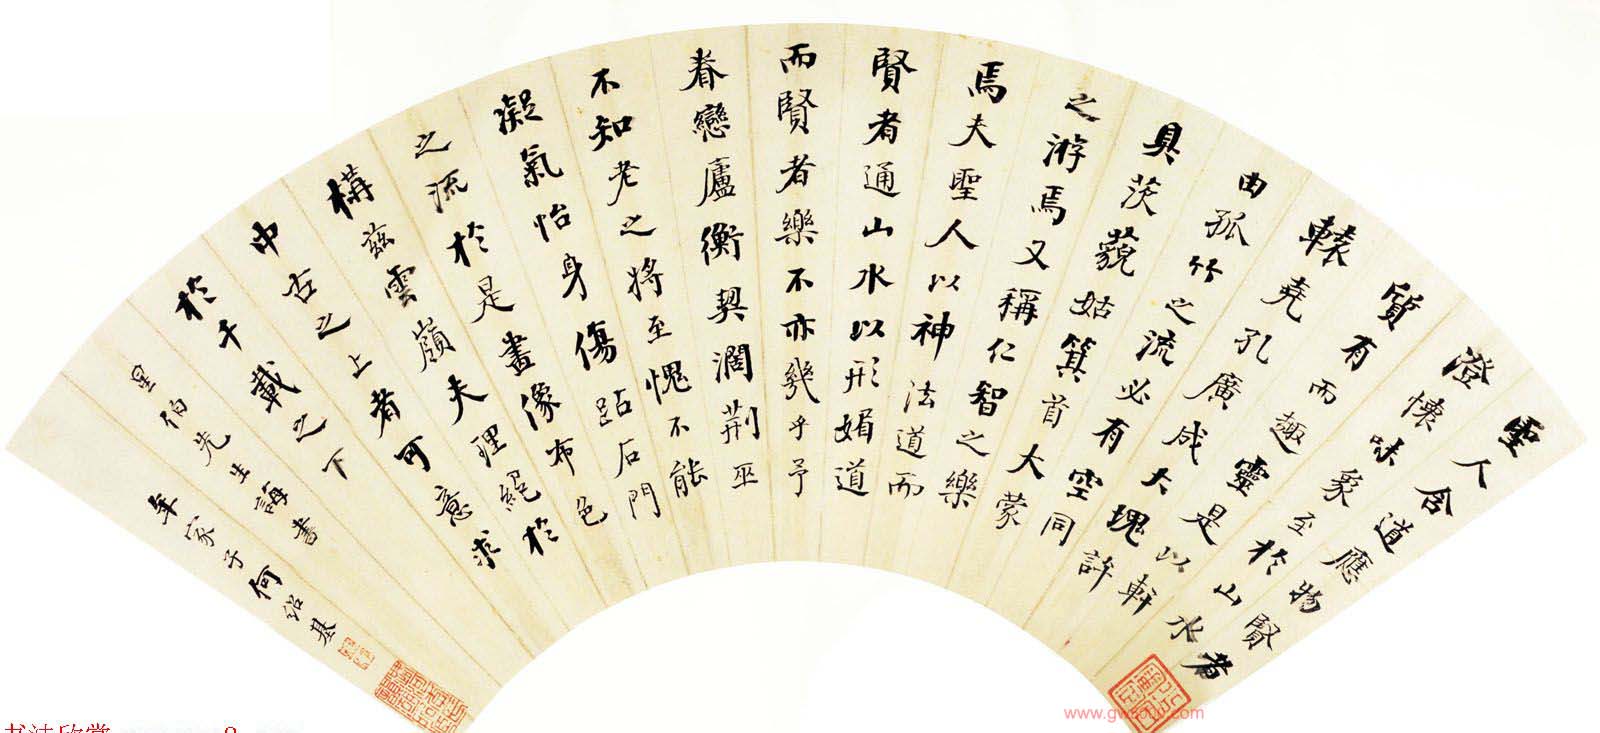 聖人含道應物賢者
澄懷味象至於山水
質有而趣靈是以軒
轅堯孔廣成大塊許
由孤竹之流必有空同
具茨藐姑箕首大蒙
之游焉又稱仁智之樂
焉夫聖人以神法道而
賢者通山水以形媚道
而賢者樂不亦幾乎予
眷戀廬衡契闊荆巫
不知老之將至愧不能
凝氣怡身傷跕石門
之流於是畫像布色
構茲雲嶺夫理絕於
中古之上者可意求
於千載之下
星伯先生誨書
年家子何紹基
书法欣赏